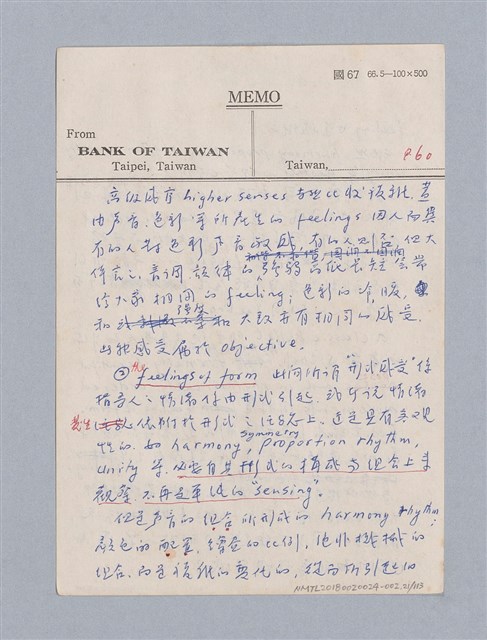 國67 66.5—100×500
MEMO
From
BANK OF TAIWAN
Taipei, Taiwan
Taiwan,
P60
高級感有 higher senses
由声音、色彩等所產生的 feelings 因人而異
有的人對色彩声音敏感,有的人則否,但大
音調旋律的強弱高低長短會帶
給大家相同的 feeling;色彩的冷,暖,
和 強弱 大致亦有相同的感受.
此种感受屬於 objective.
② feelings of form 此间所有"形式感受"係
指吾人之情緒係由形式引起,或所說情緒
發生 依附於形式之
性的. 如 harmony, symmetry proportion rhythm,
unity 等. 必需有其形式的構成與組合上來
觀察. 不再是單純的 "sensing".
但是声音的组合所形成的 harmony rhythm;
顏色的配置, 繪畫的比例, 他非機械的
组合. 而是複雜的變化的, 從而所引起的
NMTL20180020024-002.21/113